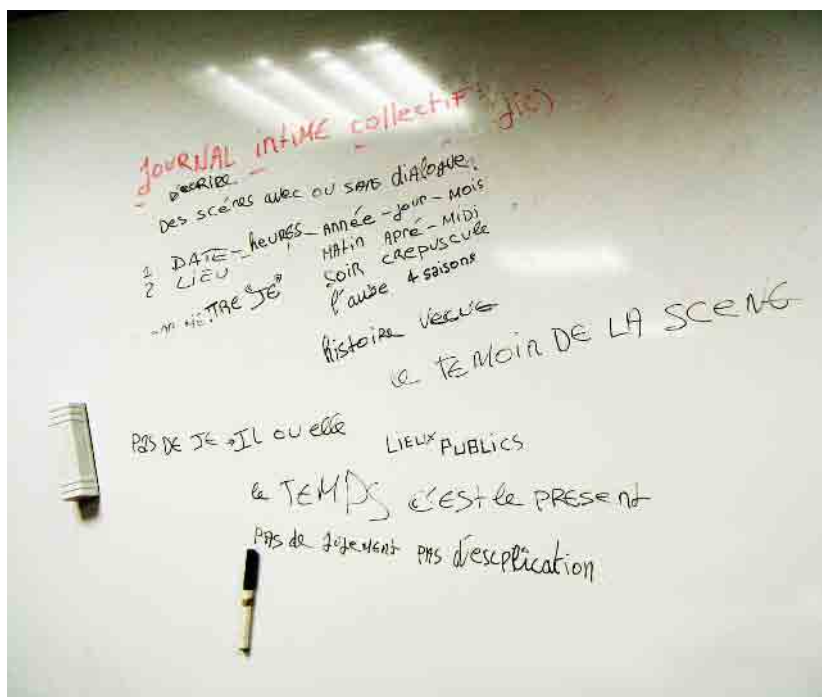 JOURNAL intiME collectiF J(E)
D'ECRIRE
Des scénes avec ou sans diAlogue.
1 DATE - heuRES - ANNée - jour - Mois
2 LIEU MATin APRé - MiDi
SOIR CREPUSCULE
METTRE "JE" l'aube 4 saisons
histoire vecue
le TEMOIN DE LA SCENE
PAS DE JE → IL ou elle LIEUX PUBLICS
le TEMPS C'EST le PRESENt
PAS de jugement PAS d'escplication